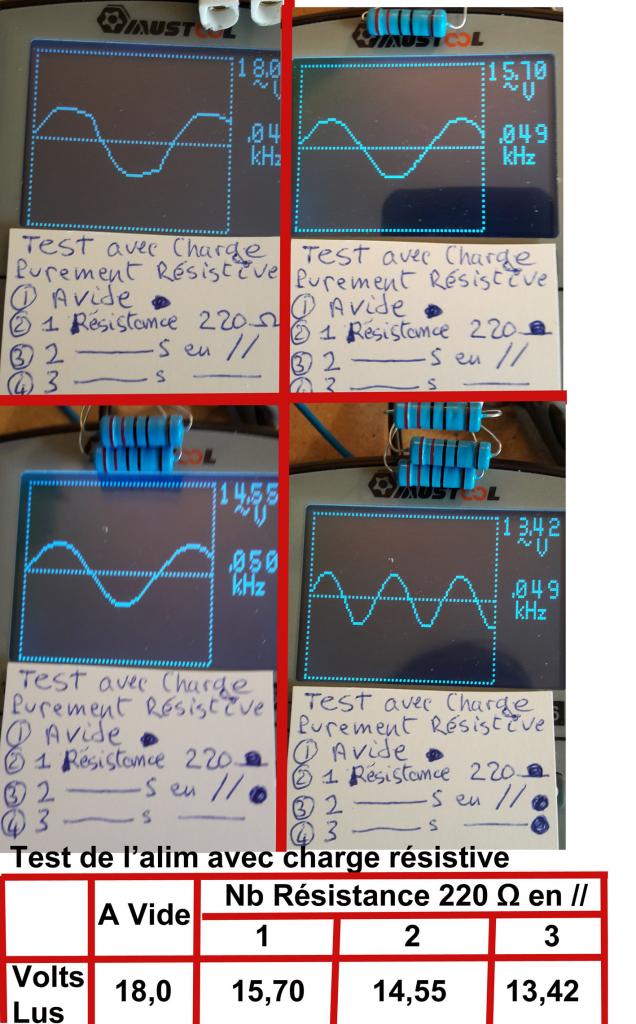 MUSTOOL
18.0
~V
.04
kHz
Test avec Charge
Purement Résistive
① A vide
② 1 Résistance 220 Ω
③ 2 ——— s en //
④ 3 ——— s ———
MUSTOOL
15.70
~V
.049
kHz
Test avec Charge
Purement Résistive
① A vide
② 1 Résistance 220
③ 2 ——— s en //
④ 3 ——— s ———
14.55
~V
.050
kHz
Test avec Charge
Purement Résistive
① A vide
② 1 Résistance 220
③ 2 ——— s en //
④ 3 ——— s ———
MUSTOOL
13.42
~V
.049
kHz
Test avec Charge
Purement Résistive
① A vide
② 1 Résistance 220
③ 2 ——— s en //
④ 3 ——— s ———
Test de l’alim avec charge résistive
A Vide
Nb Résistance 220 Ω en //
1 2 3
Volts Lus 18,0 15,70 14,55 13,42